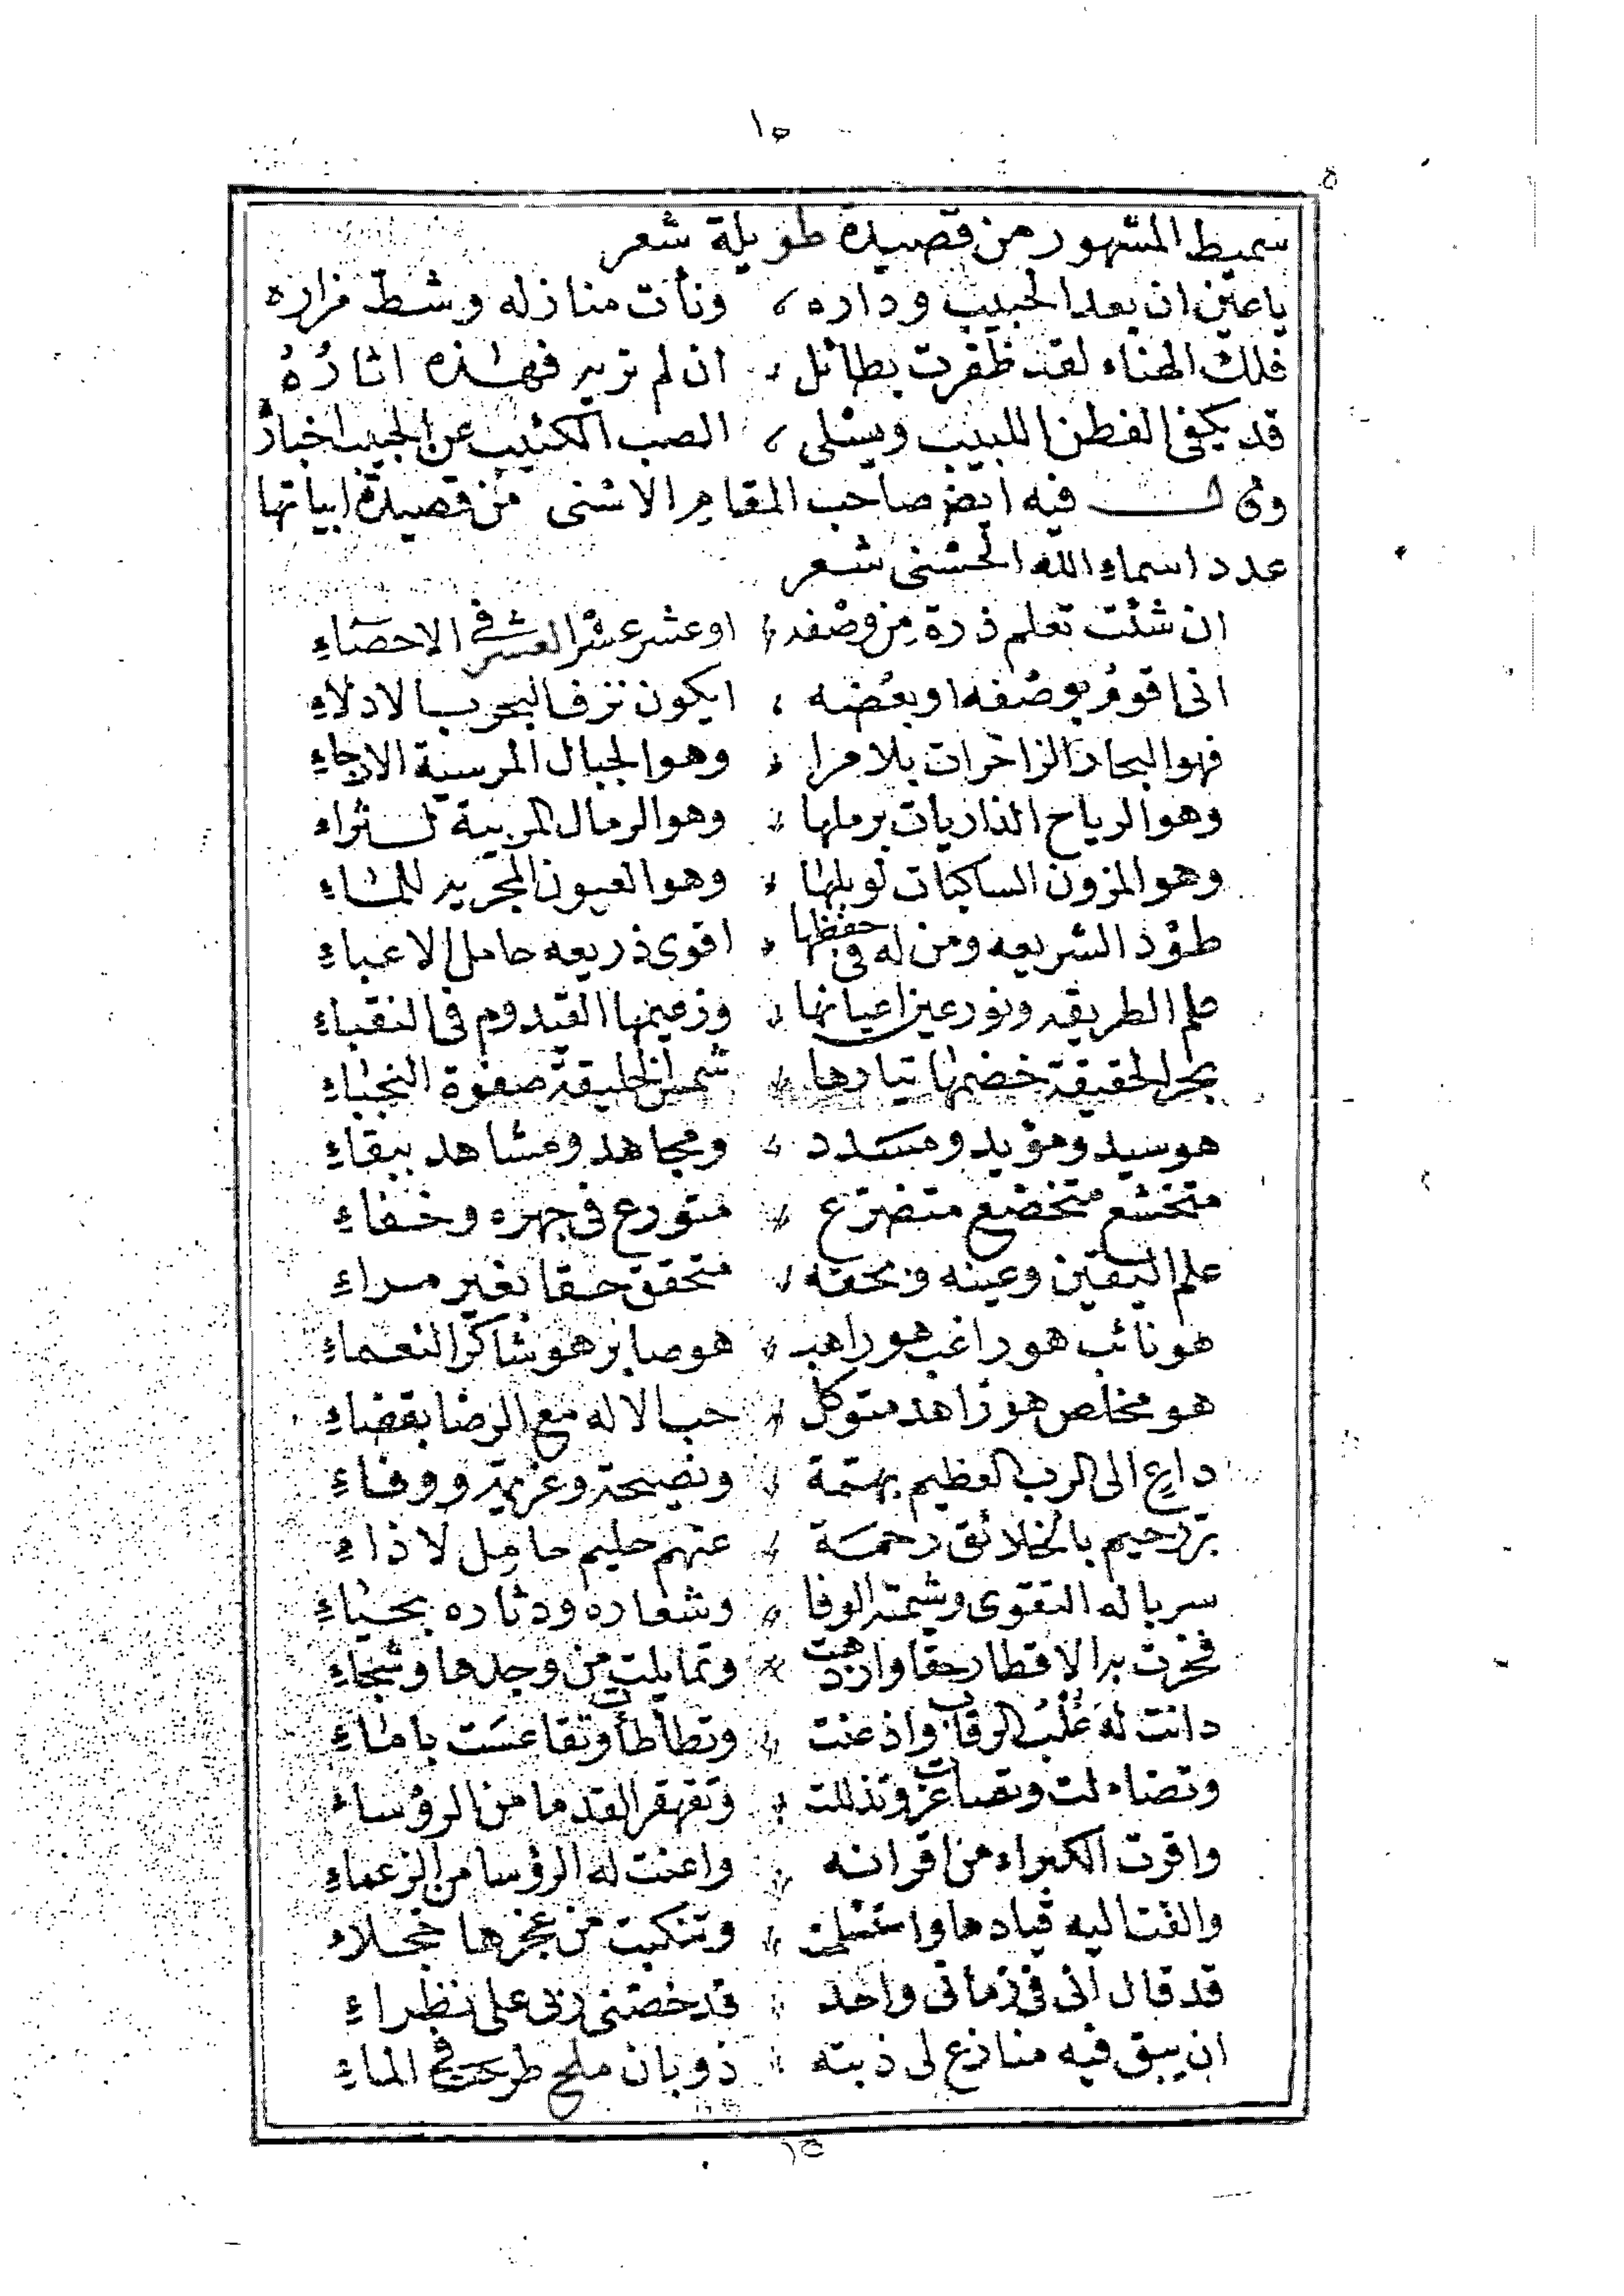 ١٥
٥
سميط المشهور من قصيدة طويلة شعر
ياعين ان بعد الحبيب وداره ، ونأت منازله وشط مزاره
فلك الهناء لقد ظفرت بطائل ، ان لم تريه فهذه اثاره
قد يكفى الفطن اللبيب ويسلى ، الصب الكئيب عن الحبيب اخباره
وقال فيه ايضا صاحب المقام الاسنى من قصيدة ابياتها
عدد اسماء الله الحسنى شعر
ان شئت تعلم ذرة من وصفه ، اوعشر عشر العشر فى الاحصاء
انى اقوم بوصفه او بعضه ، ايكون نزف البحر بالادلاء
فهو البحار الزاخرات بلا مرا ، وهو الجبال المرسية الارجاء
وهو الرياح الذاريات برملها ، وهو الرمال المربية لثراء
وهو المزون الساكبات لوبلها ، وهو العيون المجريه للماء
طود الشريعه ومن له فى حفظها ، اقوى ذريعه حامل الاعباء
علم الطريقه ونور عين اعيانها ، وزعيمها القيدوم فى النقباء
بحر الحقيقة خضمها تيارها ، شمس الخليقة صفوة النجباء
هو سيد ومؤيد ومسدد ، ومجاهد ومشاهد ببقاء
متخشع متخضع متضرع ، متورع فى جهره وخفاء
علم اليقين وعينه وبحقه ، متحقق حقا بغير مراء
هو تائب هو راغب هو راهب ، هو صابر هو شاكر النعماء
هو مخلص هو زاهد متوكل ، حب الاله مع الرضا بقضاء
داع الى الرب العظيم بهمة ، ونصيحة وعزيمة ووفاء
بر رحيم بالخلائق رحمة ، عنهم حليم حامل لاذاء
سرباله التقوى وشيمته الوفا ، وشعاره ودثاره بحياء
فخرت به الاقطار حقا وازدهت ، وتمايلت من وجدها وشجاء
دانت له غلب الرقاب واذعنت ، وتطأطأت وتقاعست باماء
وتضاءلت وتصاغرت وتذللت ، وتقهقر القدما من الرؤساء
واقرت الكبراء من اقرانه ، واعنت له الرؤسا من الزعماء
والقت اليه قيادها واستسلمت ، وتنكبت من عجزها خجلاء
قد قال انى فى زمانى واحد ، قد خصنى ربى على نظراء
ان يبق فيه منازع لى ذبته ، ذوبان ملح طرحت فى الماء
١٥